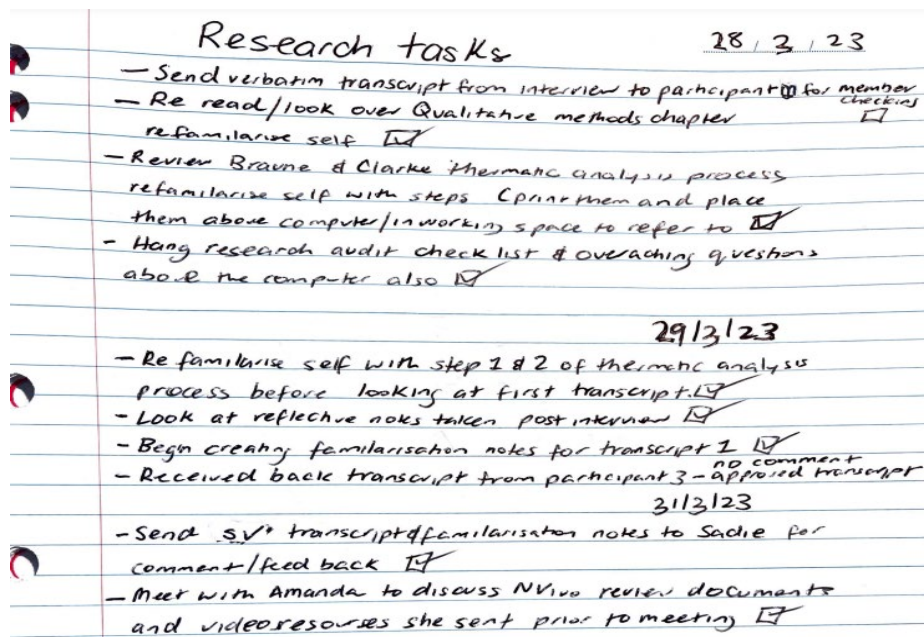 Research tasks 28/3/23
- Send verbatim transcript from interview to participant for member
checking
- Re read/look over Qualitative methods chapter
refamilarise self
- Review Braune & Clarke thermatic analysis process
refamilarise self with steps (print them and place
them above computer/in working space to refer to
- Hang research audit check list & overaching questions
above the computer also
29/3/23
- Re familarise self with step 1 & 2 of thermatic analysis
process before looking at first transcript.
- Look at reflective notes taken post interview
- Begin creating familarisation notes for transcript 1
no comment
- Received back transcript from participant 3 - approved transcript
31/3/23
- Send transcript & familarisation notes to Sadie for
comment/feed back
- Meet with Amanda to discuss NVivo review documents
and video resourses she sent prior to meeting